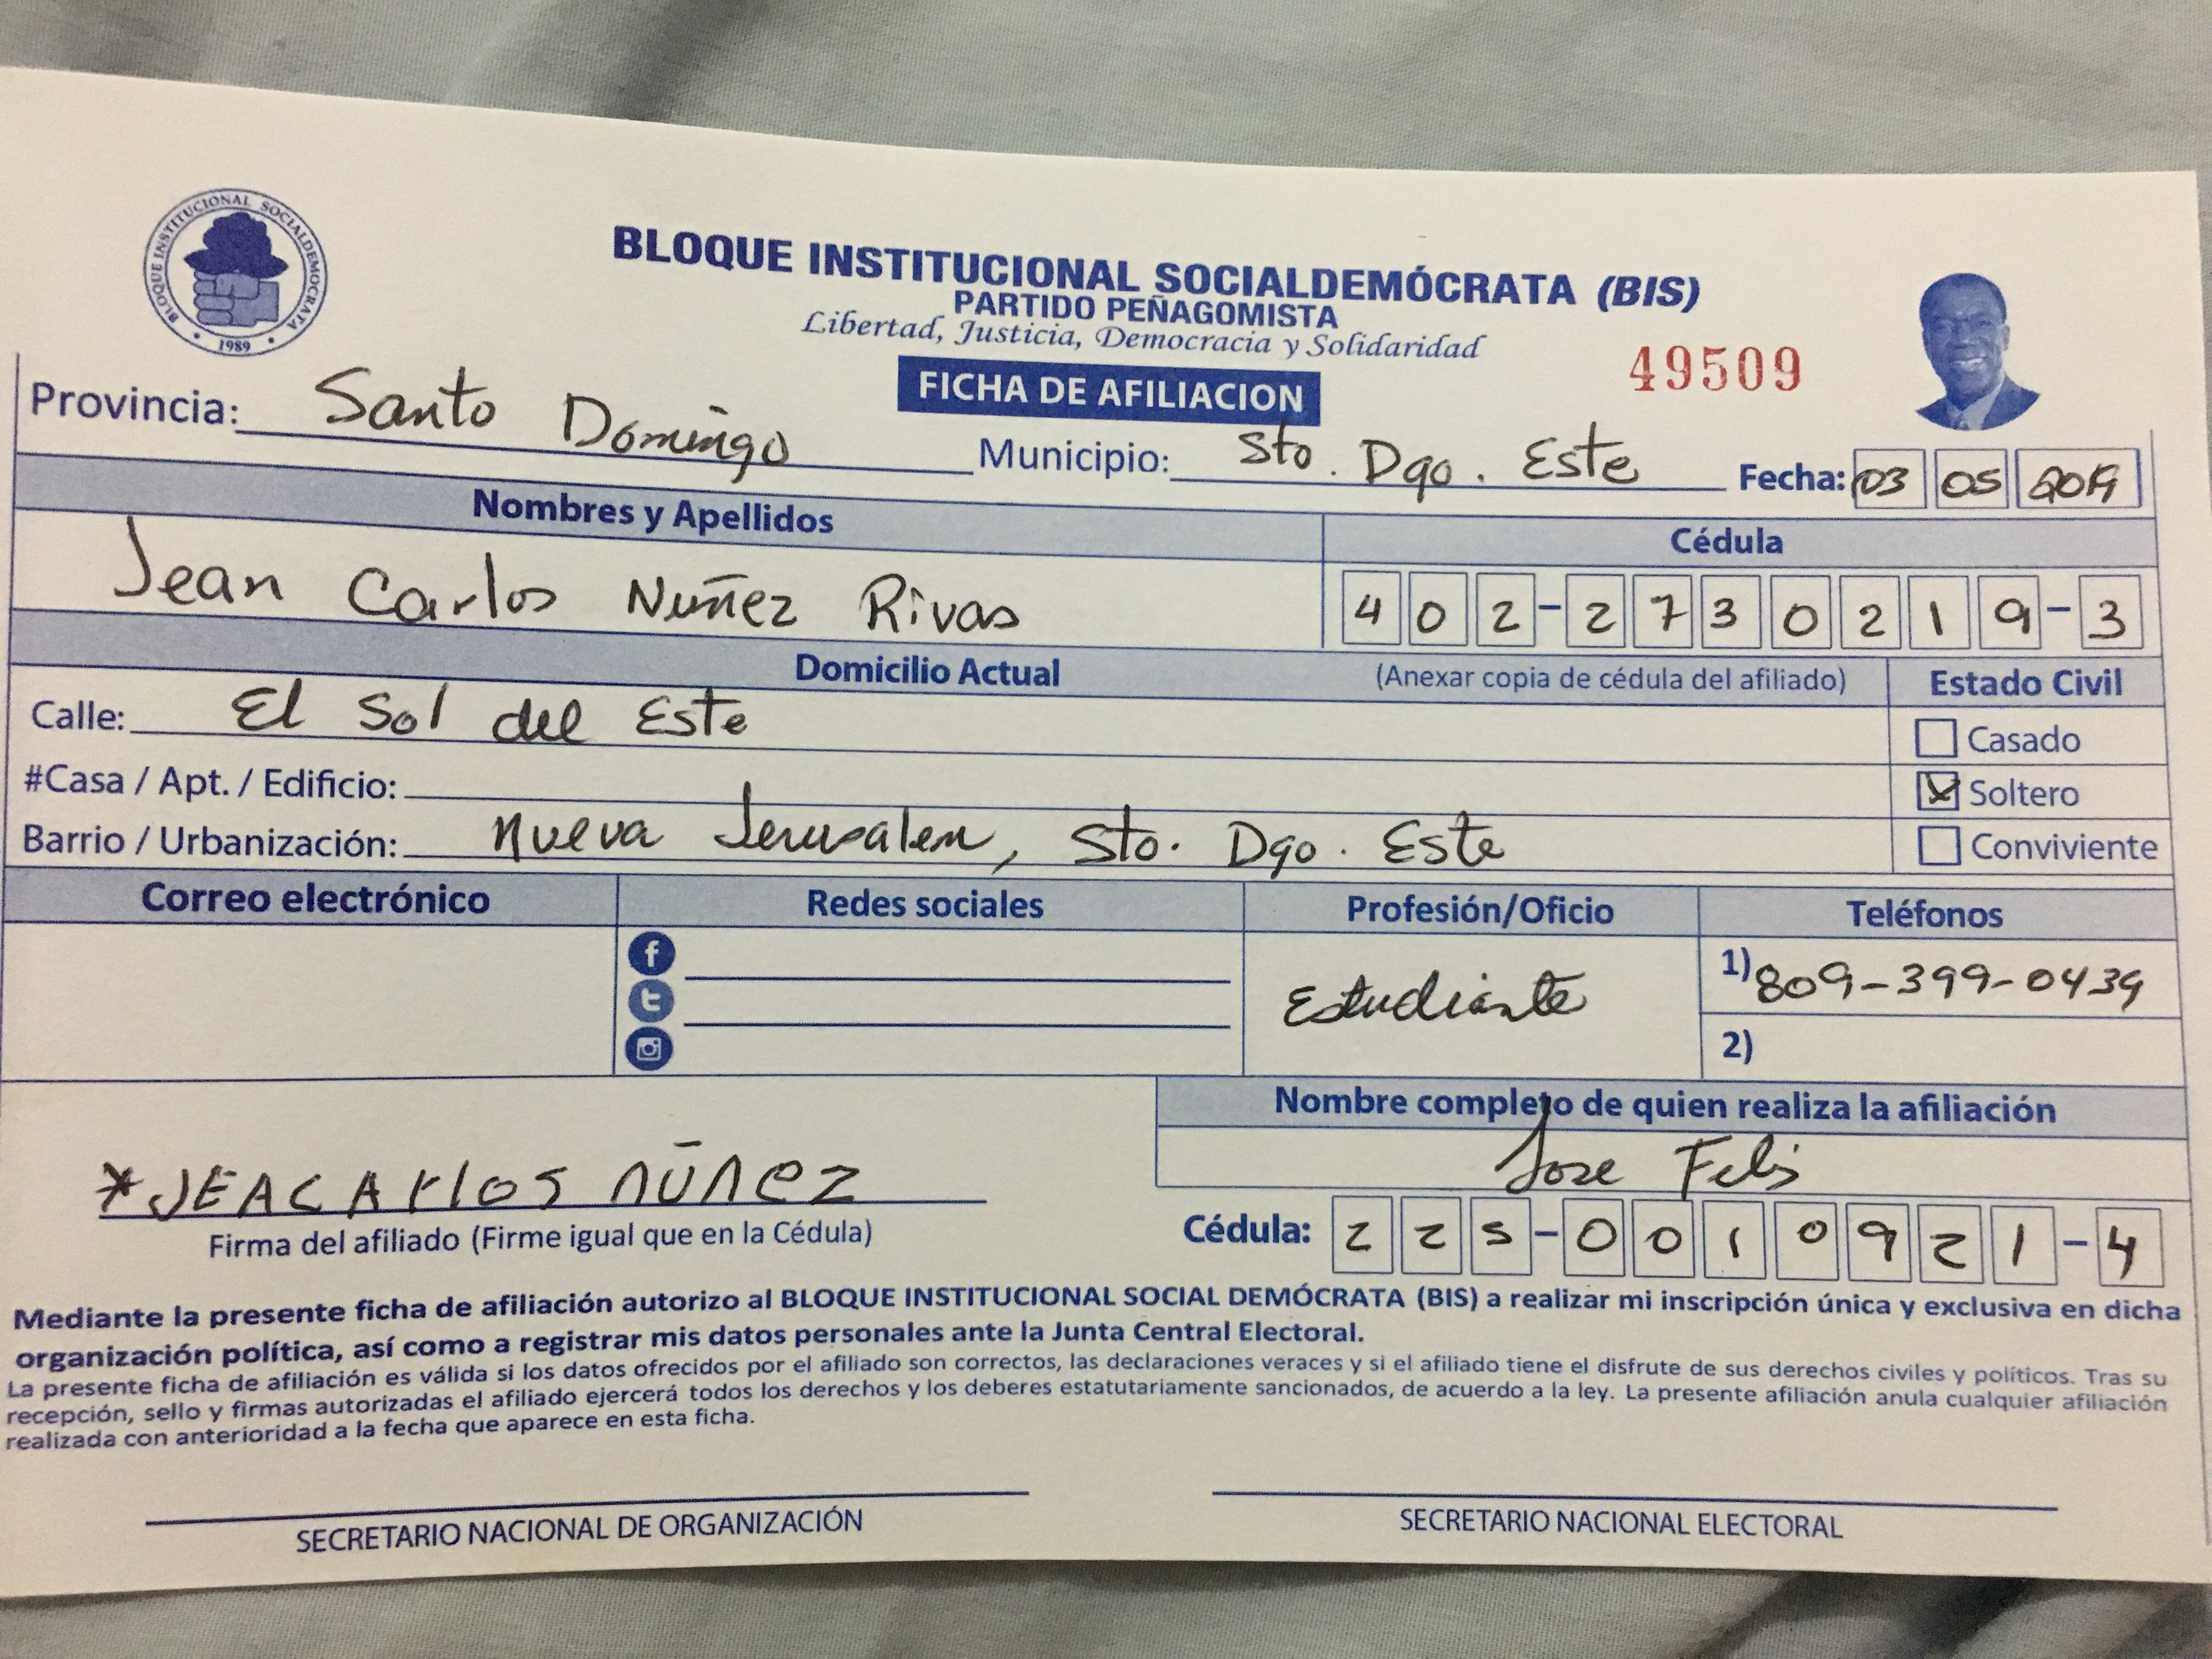 BLOQUE INSTITUCIONAL SOCIALDEMOCRATA
1989
BLOQUE INSTITUCIONAL SOCIALDEMÓCRATA (BIS)
PARTIDO PEÑAGOMISTA
Libertad, Justicia, Democracia y Solidaridad
FICHA DE AFILIACION
49509
Provincia: Santo Domingo Municipio: Sto. Dgo. Este Fecha: 03 05 2019
Nombres y Apellidos Cédula
Jean Carlos Nuñez Rivas 402-2730219-3
Domicilio Actual (Anexar copia de cédula del afiliado) Estado Civil
Calle: El Sol del Este Casado
#Casa / Apt. / Edificio: Soltero
Barrio / Urbanización: Nueva Jerusalem, Sto. Dgo. Este Conviviente
Correo electrónico Redes sociales Profesión/Oficio Teléfonos
Estudiante 1) 809-399-0439
2)
Nombre completo de quien realiza la afiliación
Jose Felis
*JEACARlOS NÚÑEZ
Firma del afiliado (Firme igual que en la Cédula) Cédula: 225-0010921-4
Mediante la presente ficha de afiliación autorizo al BLOQUE INSTITUCIONAL SOCIAL DEMÓCRATA (BIS) a realizar mi inscripción única y exclusiva en dicha
organización política, así como a registrar mis datos personales ante la Junta Central Electoral.
La presente ficha de afiliación es válida si los datos ofrecidos por el afiliado son correctos, las declaraciones veraces y si el afiliado tiene el disfrute de sus derechos civiles y políticos. Tras su
recepción, sello y firmas autorizadas el afiliado ejercerá todos los derechos y los deberes estatutariamente sancionados, de acuerdo a la ley. La presente afiliación anula cualquier afiliación
realizada con anterioridad a la fecha que aparece en esta ficha.
SECRETARIO NACIONAL DE ORGANIZACIÓN SECRETARIO NACIONAL ELECTORAL